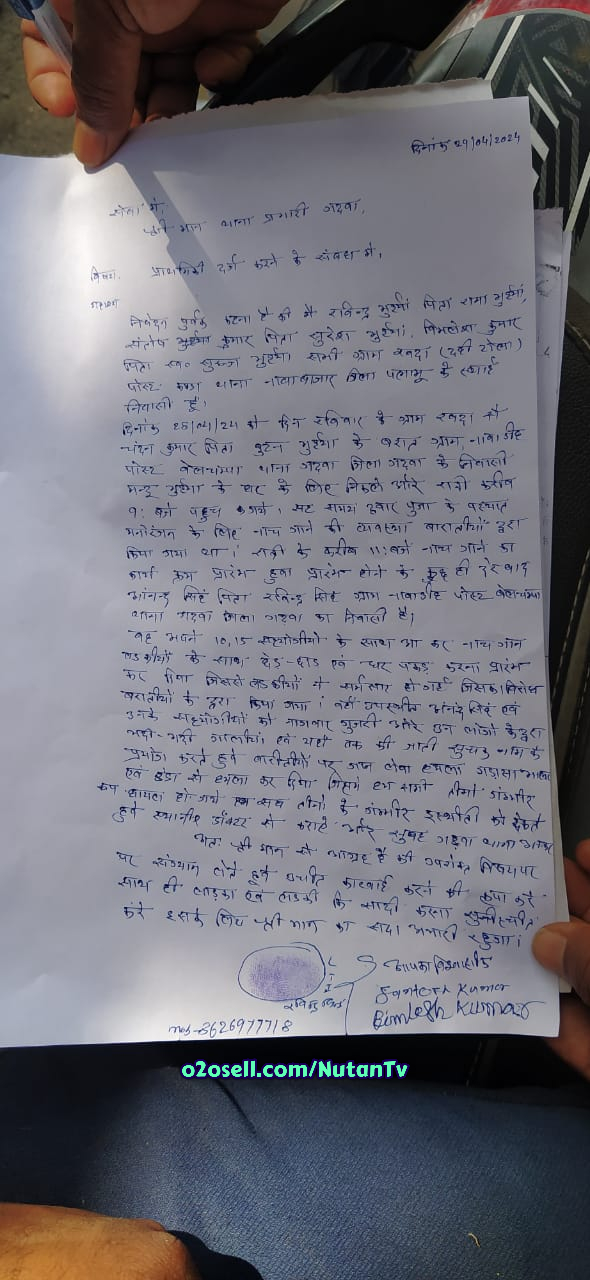 दिनांक 29/04/2024
सेवा में,
श्री मान थाना प्रभारी गढवा,
विषय. प्राथमिकी दर्ज करने के संबध में,
महाशय
निवेदन पूर्वक कहना है की मै रविन्द्र भुईयां पिता रामा भुईयां,
संतोष कुमार पिता सुरेश भुईयां, विमलेश कुमार
पिता स्व० भुईयां सभी ग्राम रबदा (टोला)
पोस्ट थाना नावाबाजार जिला पलामू के स्थाई
निवासी हूँ।
दिनांक को दिन रविवार के ग्राम रबदा से
चंदन कुमार पिता भुईयां के बरात ग्राम, नावाडीह
पोस्ट बेलचम्पा थाना गढवा जिला गढवा के निवासी
भुईयां के घर के लिए निकले और रात्री करीब
9: बजे पहुच गये। समय द्वार पुजा के पश्चात
मनोरंजन के लिए नाच गाने की व्यवस्था बारातीयों द्वारा
किया गया था। रात्री के करीब 11: बजे नाच गाने का
कार्य क्रम प्रारंभ हुवा प्रारंभ होने के कुछ ही देर बाद
आनन्द सिंह पिता रविन्द्र सिंह ग्राम नावाडीह पोस्ट बेलचम्पा
थाना गढवा जिला गढवा का निवासी है।
वह अपने 10,15 सहयोगीयो के साथ आ कर नाच गान
लडकीयों के साथ छेड-छाड एवं धर पकड करना प्रारंभ
कर दिया जिससे लडकीयों में हो गई जिसका विरोध
बरातीयों के द्वारा किया गया। वहीं उपस्थित आनंद सिंह एवं
उनके सहयोगीयों को नागवार गुजरी और उन लोगों के द्वारा
भद्दी-भद्दी गालीयां एवं यहाँ तक की जाती सुचक नाम के
प्रयोग करते हुवे बारातीयों पर जान लेवा हमला
एवं डंडा से हमला कर दिया जिसमे हम सभी तीनों गंम्भीर
रूप घायल हो गये तीनों के गंम्भीर को देखते
हुवे स्थानीय डॉक्टर से कराते और सुबह गढवा थाना
अतः श्री मान से आग्रह है की उपरोक्त विषय पर
पर संज्ञान लेते हुवे उचीत कारवाई करने की कृपा करे
साथ ही लडका एवं लडकी कि सादी करना सुनीश्चीत
करे इसके लिए श्री मान का सदा अभारी रहुगा।
आपका विश्वासी
L T I
Santosh Kumar
Bimlesh Kumar
o2osell.com/NutanTv